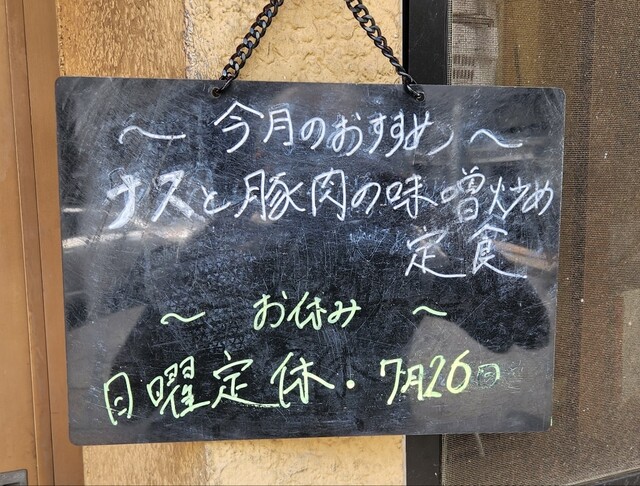 ～ 今月のおすすめ ～
ナスと豚肉の味噌炒め
定食
～ お休み ～
日曜定休・7月26日